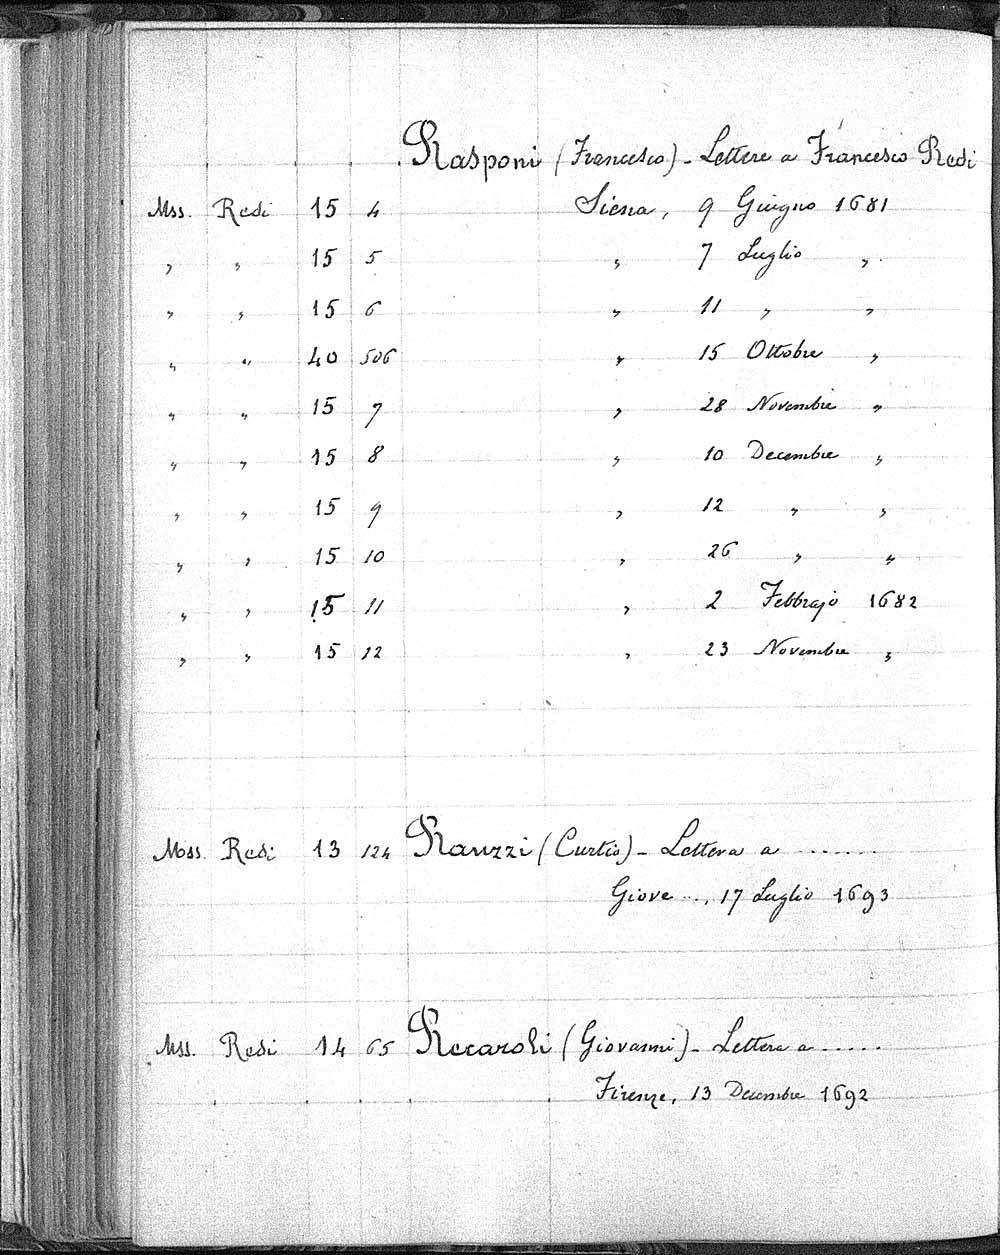 Rasponi (Francesco) - Lettere a Francesco Redi
Mss. Redi 15 4 Siena, 9 Giugno 1681
" " 15 5 " 7 Luglio "
" " 15 6 " 11 " "
" " 40 506 " 15 Ottobre "
" " 15 7 " 28 Novembre "
" " 15 8 " 10 Decembre "
" " 15 9 " 12 " "
" " 15 10 " 26 " "
" " 15 11 " 2 Febbrajo 1682
" " 15 12 " 23 Novembre "
Mss. Redi 13 124 Rauzzi (Curtio) - Lettera a .......
Giove ..., 17 Luglio 1693
Mss. Redi 14 65 Recaroli (Giovanni) - Lettera a .....
Firenze, 13 Decembre 1692